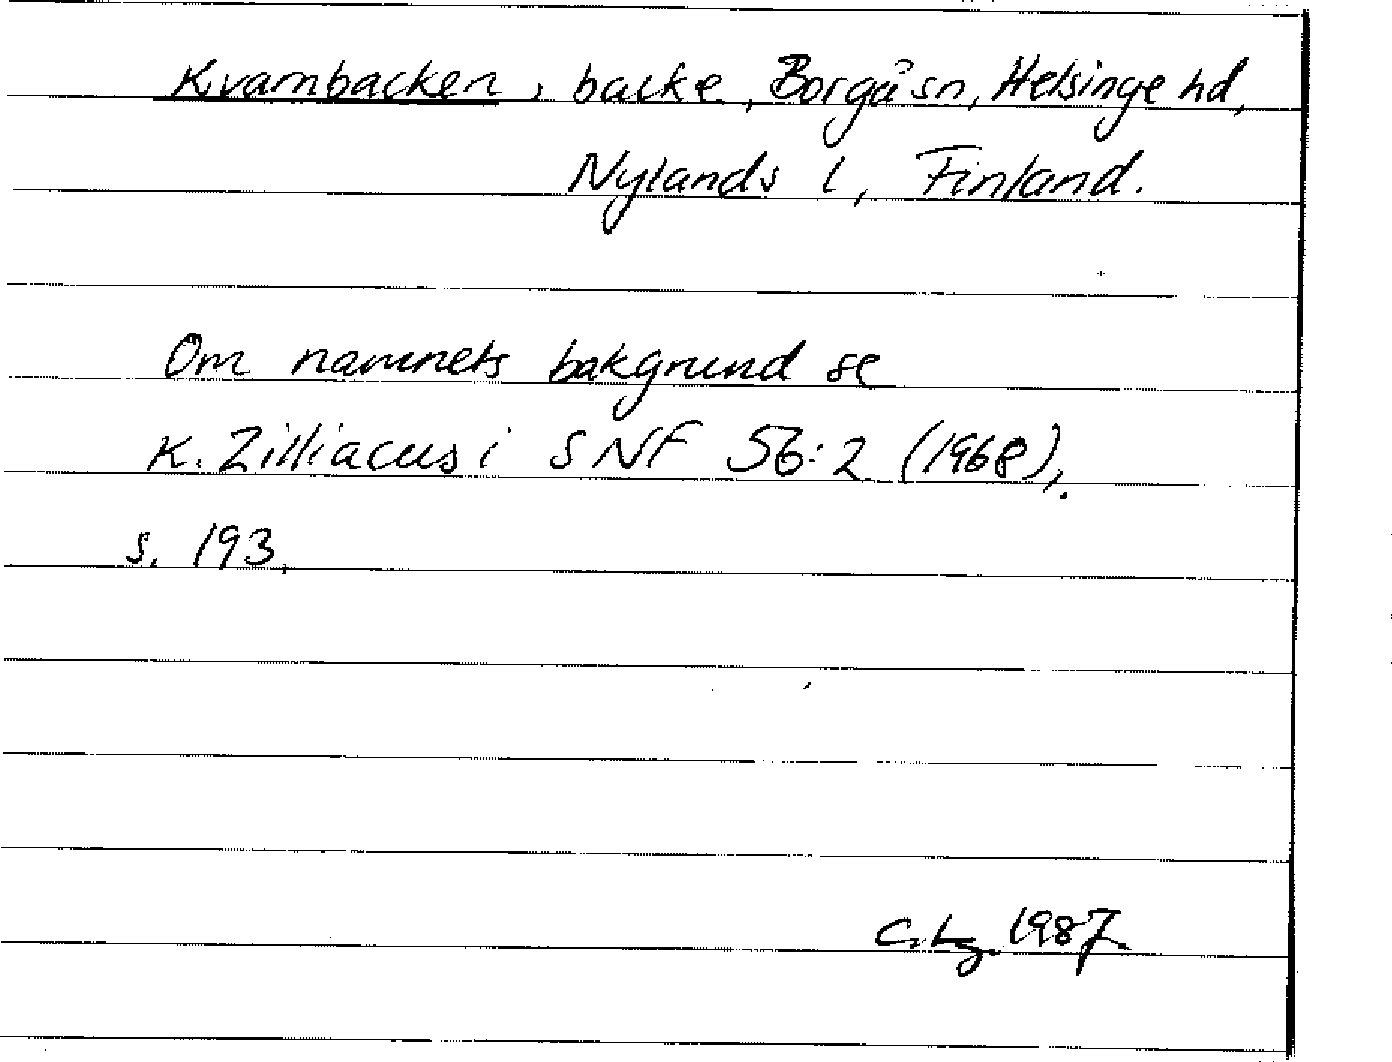 Kvarnbacken, backe, Borgå sn, Helsinge hd,
Nylands l, Finland.
Om namnets bakgrund se
K. Zilliacus i SNF 56:2 (1968),
s. 193.
C. Lg. 1987